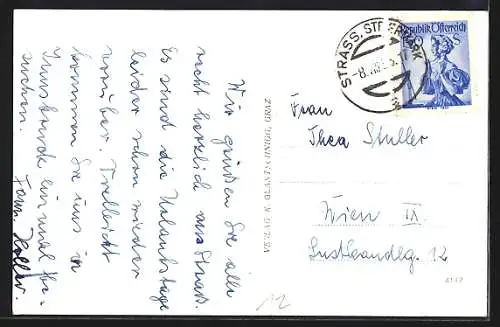 Wir grüßen Sie alle
recht herzlich aus Strass.
Es sind die Urlaubstage
leider schon wieder
vorüber. Vielleicht
kommen Sie uns in
einmal be-
suchen.
Fam. Holler.
VERLAG K. BRANTSCHNIGG, GRAZ
STRASS, STEIERMARK
Republik Österreich
Frau
Thea Stuller
Wien IX.
12
4117
12